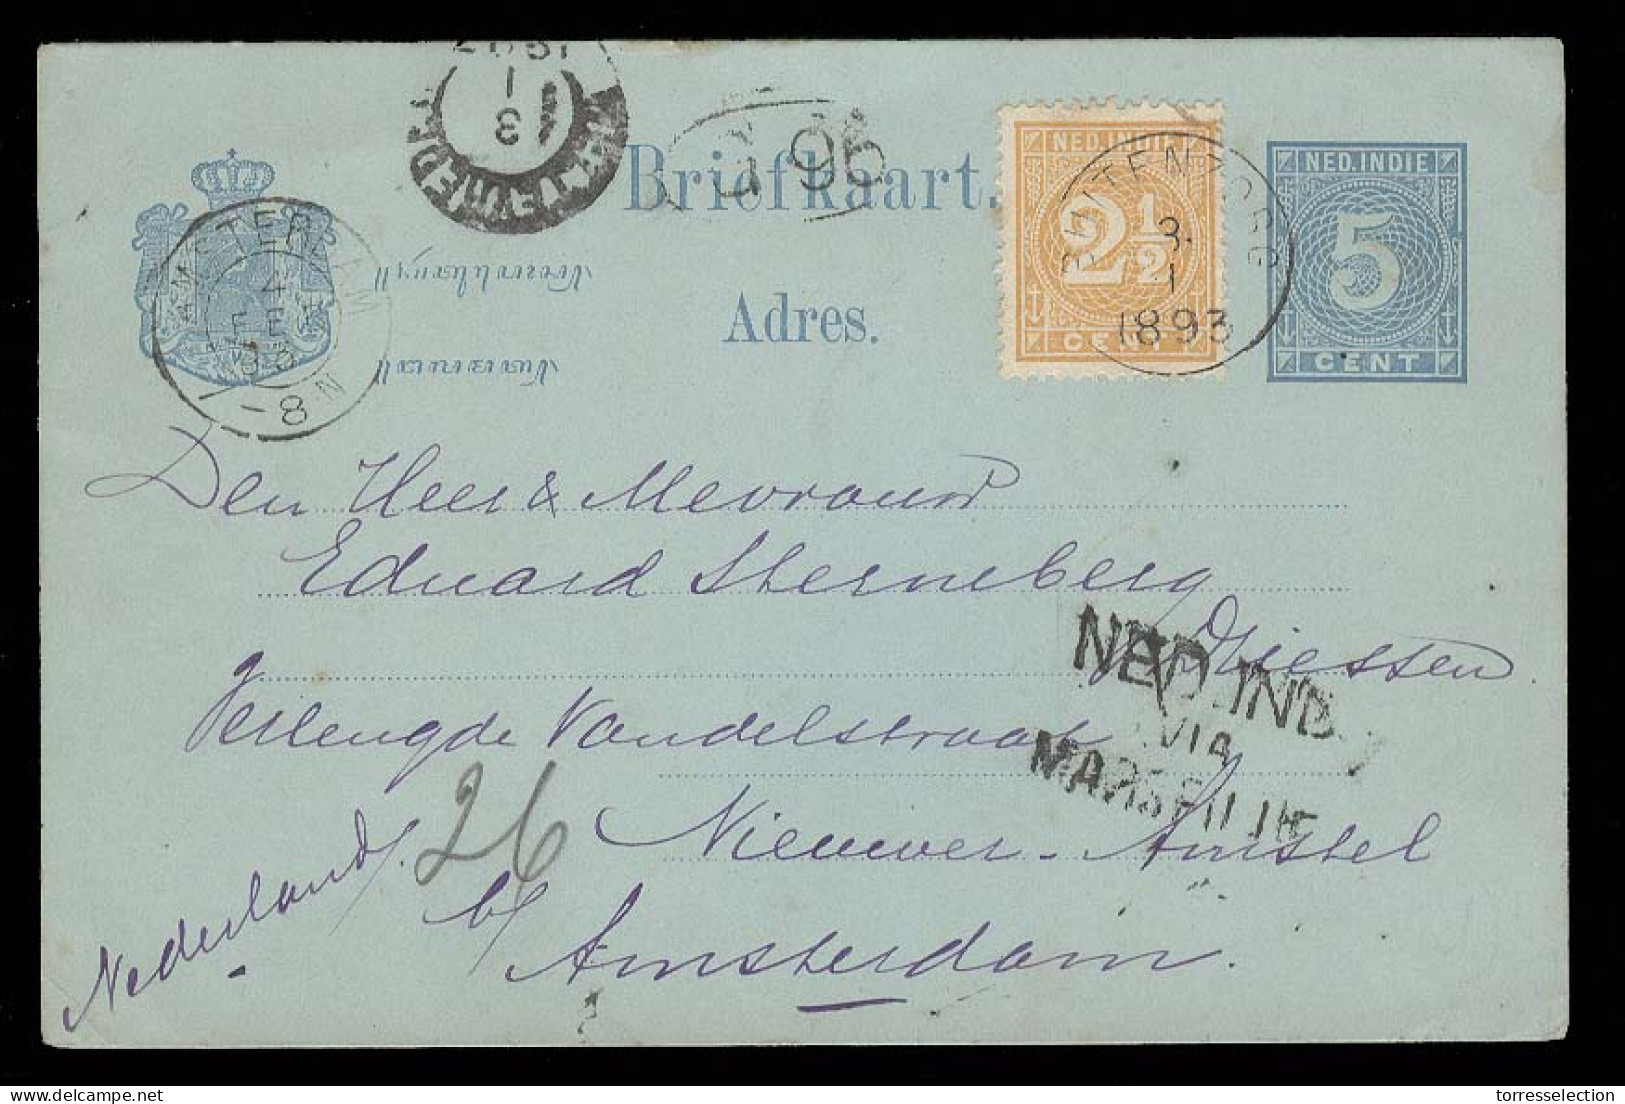 Briefkaart.
Adres.
NED. INDIE
2 1/2
CENT
NED. INDIE
5
CENT
BUITENZORG
3
1
1893
AMSTERDAM
4
FE
93
8 N
Den Heer & Mevrouw
Eduard Sterneberg
Driessen
Verlengde Vondelstraat
Nieuwer-Amstel
b/
Amsterdam.
Nederland.
26
NED. IND.
VIA
MARSEILLE
torresselection